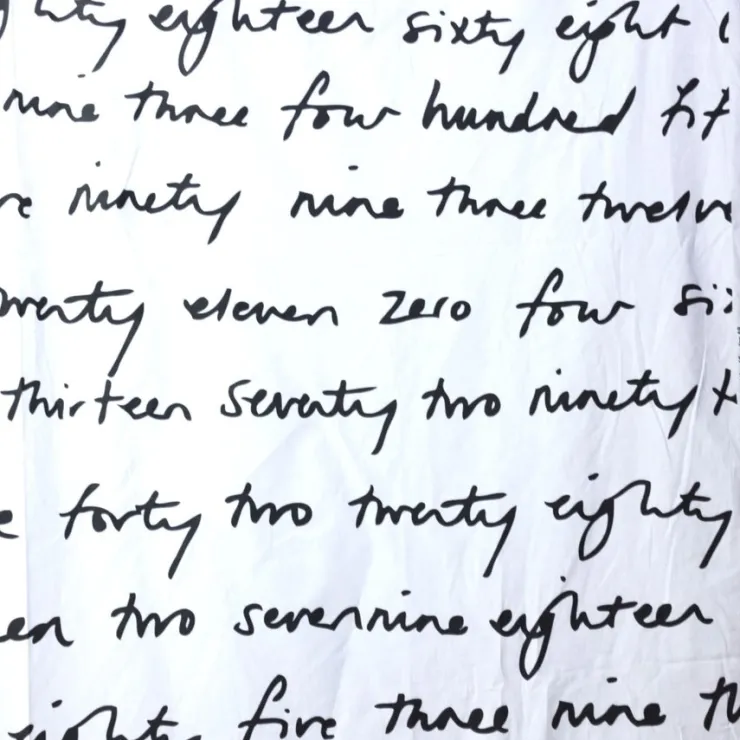 eighteen sixty eight
nine three four hundred
ninety nine three twelve
twenty eleven zero four
thirteen seventy two ninety
forty two twenty eighty
two seven nine eighteen
eighty five three nine